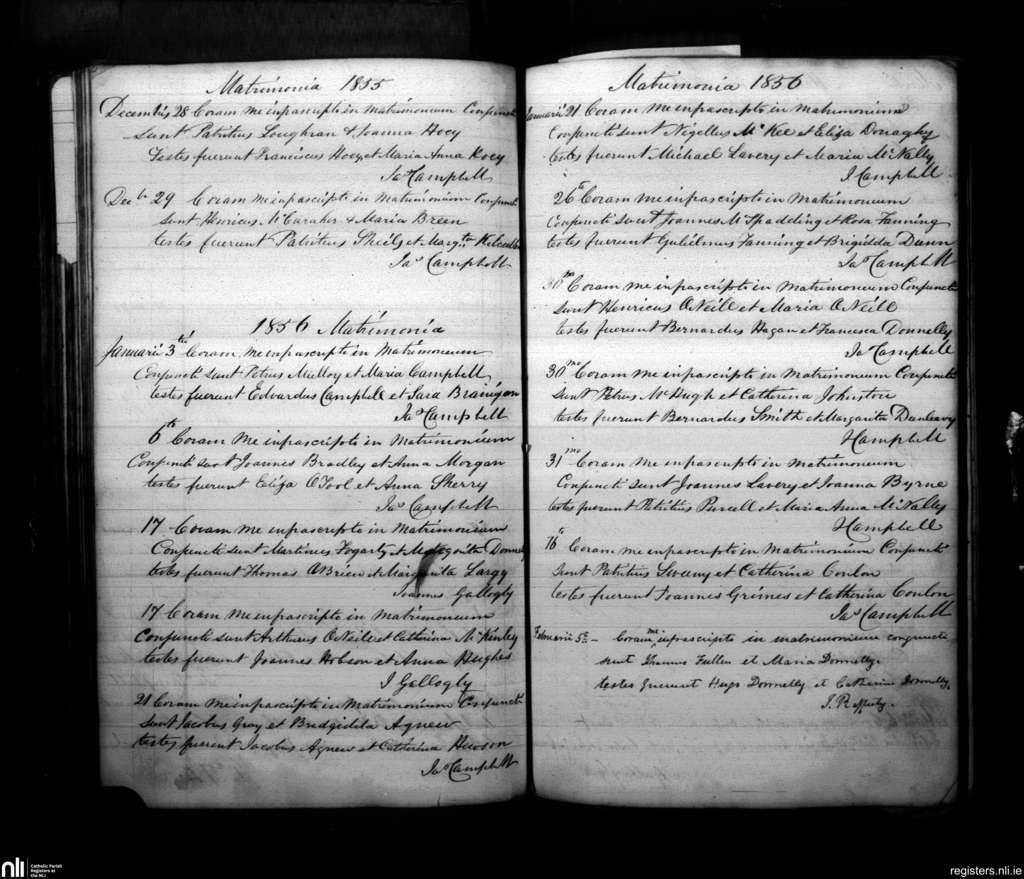 Matrimonia 1855
Decembris 28 Coram me infrascripto in matrimonium Conjuncti
Sunt Patritius Loughran & Joanna Hoey
Testes fuerunt Franciscus Hoey et Maria Anna Hoey
Jas Campbell
Decbr 29 Coram me infrascripto in Matrimonium Conjuncti
sunt Henricus McCaraher & Maria Breen
testes fuerunt Patritius Sheils et Margta
Jas Campbell
1856 Matrimonia
Januarii 3th Coram me infrascripto in Matrimonium
Conjuncti sunt Petrus Mulloy et Maria Campbell
testes fuerunt Edwardus Campbell et Sara Branigan
Jas Campbell
6th Coram Me infrascripto in Matrimonium
Conjuncti sunt Joannes Bradley et Anna Morgan
testes fuerunt Eliza O'Tool et Anna Sherry
Jas Campbell
17 Coram me infrascripto in Matrimonium
Conjuncti sunt Martinus Fogarty et Margarita
testes fuerunt Thomas O'Brien et Margarita Largy
Joannes Gallogly
17 Coram Me infrascripto in Matrimonium
Conjuncti sunt Arthurus O'Neile et Catherina McKinley
testes fuerunt Joannes Hobson et Anna Hughes
J Gallogly
21 Coram Me infrascripto in Matrimonium Conjuncti
Sunt Jacobus Gray et Bridgidda Agnew
testes fuerunt Jacobus Agnew et Catherina Hewson
Jas Campbell
Matrimonia 1856
Januarii 21 Coram Me infrascripto in matrimonium
Conjuncti sunt Nigellus McKee et Eliza Donaghy
testes fuerunt Michael Lavery et Maria McNally
J Campbell
26th Coram Me infrascripto in Matrimonium
Conjuncti Sunt Joannes McSpadding et Rosa Fanning
testes fuerunt Gulielmus Fanning et Brigidda Dunn
Jas Campbell
30mo Coram me infrascripto in Matrimonium Conjuncti
sunt Henricus O'Neill et Maria O'Neill
testes fuerunt Bernardus Hagan et Francisca Donnelly
Jas Campbell
30mo Coram me infrascripto in Matrimonium Conjuncti
sunt Petrus McHugh et Catherina Johnston
testes fuerunt Bernardus Smith et Margarita Dunleavy
J Campbell
31mo Coram Me infrascripto in Matrimonium
Conjuncti sunt Joannes Lavery et Joanna Byrne
testes fuerunt Patritius Purcell et Maria Anna McNally
J Campbell
16th Coram me infrascripto in Matrimonium Conjuncti
sunt Patritius Sweeny et Catherina Conlon
testes fuerunt Joannes Grimes et Catherina Conlon
Jas Campbell
Februarii 5th – Coram me infrascripto in matrimonium conjuncti
sunt Thomas Fullen et Maria Donnelly
testes fuerunt Hugo Donnelly et Catherina Donnelly
J. Rafferty.
nli Catholic Parish
Registers at
the NLI
registers.nli.ie